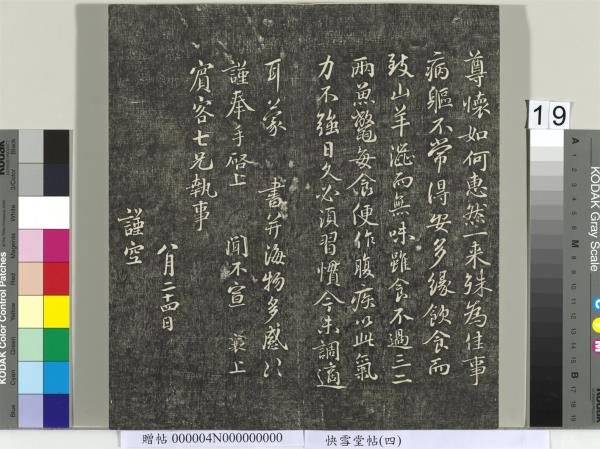 尊懷如何惠然一来殊為佳事
病軀不常得安多緣飲食而
致山羊澁而無味雖食不過三二
兩魚鼈每食便作腹疾以此氣
力不強日久必須習慣今未調適
耳蒙 書并海物多感以
謹奉手啓上 聞不宣 襄上
賓客七兄執事
八月二十四日
謹空
19
贈帖 000004N000000000 快雪堂帖(四)
KODAK Color Control Patches
Blue
Cyan
Green
Yellow
Red
Magenta
White
3/Color
Black
KODAK Gray Scale
A
M
B
C
Y
M